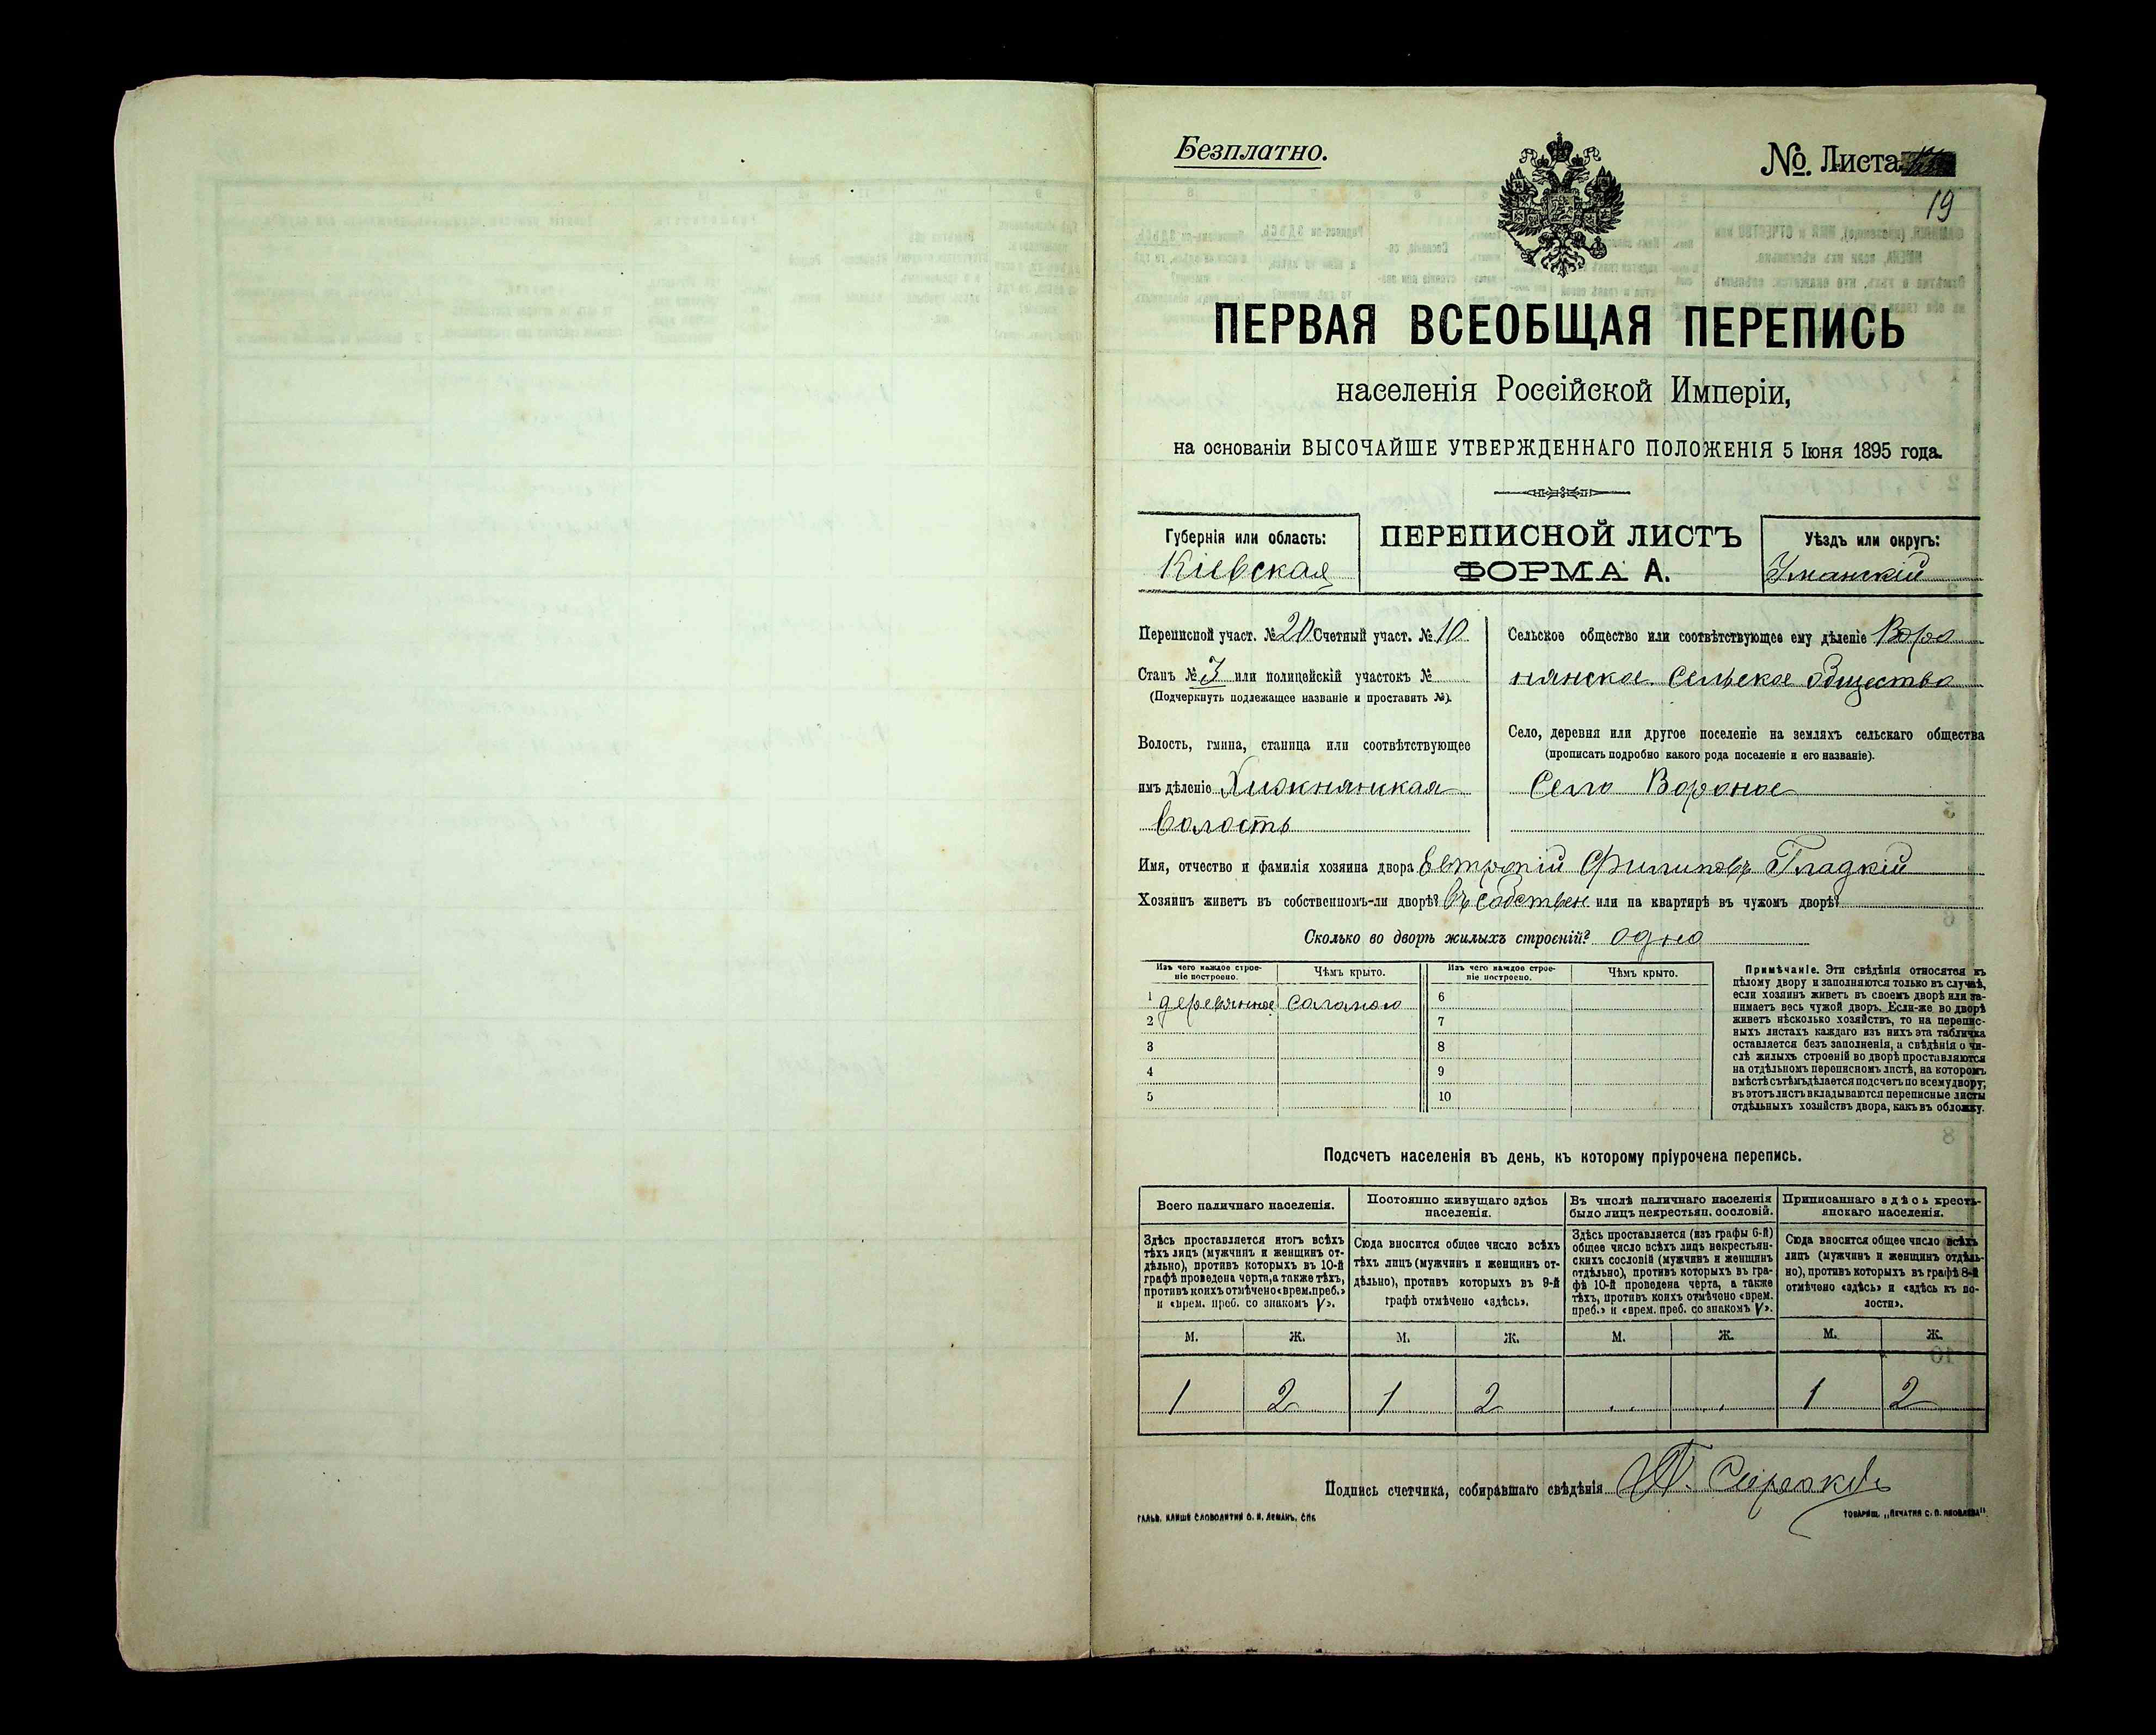 Безплатно.
№. Листа
19
ПЕРВАЯ ВСЕОБЩАЯ ПЕРЕПИСЬ
населенія Россійской Имперіи,
на основаніи ВЫСОЧАЙШЕ УТВЕРЖДЕННАГО ПОЛОЖЕНІЯ 5 Іюня 1895 года.
Губернія или область:
Кіевская
ПЕРЕПИСНОЙ ЛИСТЪ
ФОРМА А.
Уѣздъ или округъ:
Уманскій
Переписной участ. № 20 Счетный участ. № 10
Станъ № 3 или полицейскій участокъ №
(Подчеркнуть подлежащее названіе и проставить №).
Волость, гмина, станица или соотвѣтствующее
имъ дѣленіе Хижнянская
волость
Сельское общество или соотвѣтствующее ему дѣленіе Воро
нянское Сельское Общество
Село, деревня или другое поселеніе на земляхъ сельскаго общества
(прописать подробно какого рода поселеніе и его названіе).
Село Вороное
Имя, отчество и фамилія хозяина двора Евтропій Филиповъ Гладкій
Хозяинъ живетъ въ собственномъ-ли дворѣ? Въ собствен или на квартирѣ въ чужомъ дворѣ?
Сколько во дворѣ жилыхъ строеній? одно
Изъ чего каждое строе-
ніе построено.
Чѣмъ крыто.
Изъ чего каждое строе-
ніе построено.
Чѣмъ крыто.
1 деревянное соломою 6
2 7
3 8
4 9
5 10
Примѣчаніе. Эти свѣдѣнія относятся къ
цѣлому двору и заполняются только въ случаѣ,
если хозяинъ живетъ въ своемъ дворѣ или за-
нимаетъ весь чужой дворъ. Если-же во дворѣ
живетъ нѣсколько хозяйствъ, то на перепис-
ныхъ листахъ каждаго изъ нихъ эта табличка
оставляется безъ заполненія, а свѣдѣнія о чи-
слѣ жилыхъ строеній во дворѣ проставляются
на отдѣльномъ переписномъ листѣ, на которомъ
вмѣстѣ съ тѣмъ дѣлается подсчетъ по всему двору;
въ этотъ листъ вкладываются переписные листы
отдѣльныхъ хозяйствъ двора, какъ въ обложку.
Подсчетъ населенія въ день, къ которому пріурочена перепись.
Всего наличнаго населенія.
Здѣсь проставляется итогъ всѣхъ
тѣхъ лицъ (мужчинъ и женщинъ от-
дѣльно), противъ которыхъ въ 10-й
графѣ проведена черта, а также тѣхъ,
противъ коихъ отмѣчено «врем. преб.»
и «врем. преб. со знакомъ V».
Постоянно живущаго здѣсь
населенія.
Сюда вносится общее число всѣхъ
тѣхъ лицъ (мужчинъ и женщинъ от-
дѣльно), противъ которыхъ въ 9-й
графѣ отмѣчено «здѣсь».
Въ числѣ наличнаго населенія
было лицъ некрестьян. сословій.
Здѣсь проставляется (изъ графы 6-й)
общее число всѣхъ лицъ некрестьян-
скихъ сословій (мужчинъ и женщинъ
отдѣльно), противъ которыхъ въ гра-
фѣ 10-й проведена черта, а также
тѣхъ, противъ коихъ отмѣчено «врем.
преб.» и «врем. преб. со знакомъ V».
Приписаннаго здѣсь кресть-
янскаго населенія.
Сюда вносится общее число всѣхъ
лицъ (мужчинъ и женщинъ отдѣль-
но), противъ которыхъ въ графѣ 8-й
отмѣчено «здѣсь» и «здѣсь къ во-
лости».
М. Ж. М. Ж. М. Ж. М. Ж.
1 2 1 2 1 2
Подпись счетчика, собиравшаго свѣдѣнія
ГАЛЬВ. КЛИШЕ СЛОВОЛИТНИ О. И. ЛЕМАНЪ, СПБ.
ТОВАРИЩ. „ПЕЧАТНЯ С. П. ЯКОВЛЕВА"